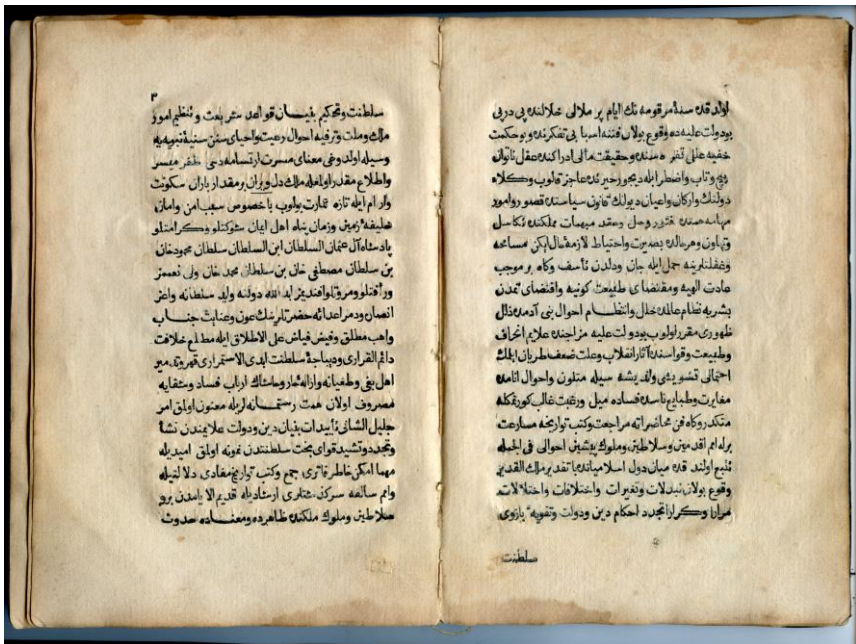 اولدقده سنهٔ مرقومه نك ايام پر ملالی خلالنده پی درپی
بودولت عليه ده وقوع بولان فتنه اسبابی تفكرنده و بو حكمت
خفيه عللی تفرسنده و حقيقت مألی ادراكنده عقل ناتوان
پيچ وتاب واضطرابله ديجور حيرتده عاجز قالوب وكلاء
دولتك واركان واعيان ديولتك قانون سياسنده قصور و امور
مهامه سنده فتور وحل وعقد مهمات مملكتده تكاسل
وتهاون وهرحالده بصيرت واحتياط لازمهٔ حال ايكن مسامحه
وغفلتلرينه حمل ايله جان ودلدن تأسف وكاه بر موجب
عادت الهيه ومقتضای طبيعت كونيه واقتضای تمدن
بشريه نظام عالمده خلل وانتظام احوال بنی آدمده زلل
ظهوری مقرر اولوب بودولت عليه مزاجنده علايم انحراف
وطبيعت وقواسنده آثار انقلاب وعلت ضعف طريان ايلمك
احتمالی تشويشی واندیشه سيله متلون واحوال انامده
مغايرت وطبايع ناسده فساده ميل ورغبت غالب كورنمكله
متكدر وكاه فن محاضراته مراجعت وكتب تواريخه مسارعت
برله امم اقدمين وسلاطين وملوك پيشين احوالی فی الجمله
تتبع اولندقده ميان دول اسلاميانده با تقدير ملك القدير
وقوع بولان تبدلات وتغيرات واختلافات واختلالات
مرارا وكرارا تجدد احكام دين ودولت وتقويهٔ بازوی
سلطنت
٣
سلطنت وتحكيم بنيان قواعد شريعت وتنظيم امور
ملك وملت وترفيه احوال رعيت واحيای سنن سنيهٔ نبويه يه
وسيله اولدوغی معنای مسرت ارتسامه دسترس ظفر ميسر
واطلاع مقدر اولمغله ملك دل ويران برمقدار باران سكونت
وآرام ايله تازه عمارت بولوب باخصوص سبب امن وامان
خليفهٔ زمين وزمان پناه اهل ايمان شوكتلو وكرامتلو
پادشاه آل عثمان السلطان ابن السلطان سلطان محمود خان
بن سلطان مصطفی خان بن سلطان محمد خان ولی نعممز
ورأفتلو ومروتلو افنديمز ايد الله دولته وابد سلطانه واعز
انصاره ودمر اعدائه حضرتلرينك عون وعنايت جناب
واهب مطلق وفيض فياض علی الاطلاق ايله مطلع خلافت
دائم القراری وديباجهٔ سلطنت ابدی الاستمراری قهر وتدمير
اهل بغی وطغيانه وازالهٔ خار وخاشاك ارباب فساد وشقايه
مصروف اولان همت رستمانه لريله معنون اولمق امر
جليل الشانی تأييدات بنيان دين ودولت علايمندن نشأ
وتجدد وتشييد قوای بخت سلطنتدن نمونه اولمق اميديله
مهما امكن خاطر فاتری جمع وكتب تواريخ مفادی دلالتيله
وامم سالفه سركذشتلری ارشاديله قديم الايامدن برو
سلاطين وملوك ملكنده ظاهرده ومعناده حدوث